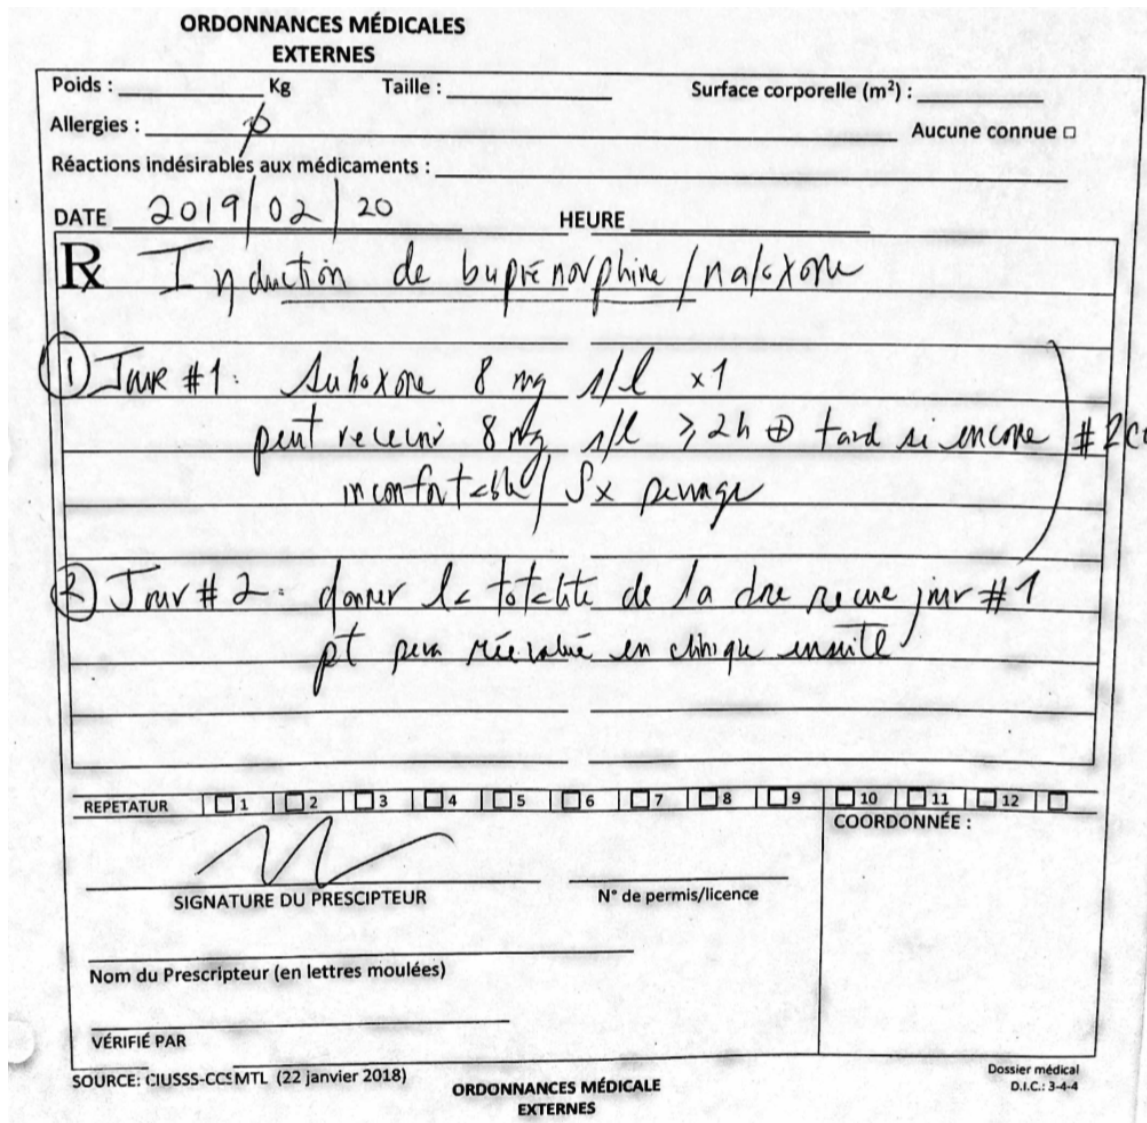 ORDONNANCES MÉDICALES
EXTERNES
Poids : Kg Taille : Surface corporelle (m²) :
Allergies : ø Aucune connue □
Réactions indésirables aux médicaments :
DATE 2019/02/20 HEURE
Rx Induction de buprénorphine/naloxone
① Jour #1: Suboxone 8 mg s/l x1
peut recevoir 8 mg s/l ≥2h ⊕ tard si encore #2
inconfortable/Sx sevrage
② Jour #2: donner la totalité de la dose reçue jour #1
pt sera réévalué en clinique ensuite
REPETATUR □1 □2 □3 □4 □5 □6 □7 □8 □9 □10 □11 □12 □
COORDONNÉE :
SIGNATURE DU PRESCIPTEUR N° de permis/licence
Nom du Prescripteur (en lettres moulées)
VÉRIFIÉ PAR
SOURCE: CIUSSS-CCSMTL (22 janvier 2018)
Dossier médical
D.I.C.: 3-4-4
ORDONNANCES MÉDICALE
EXTERNES